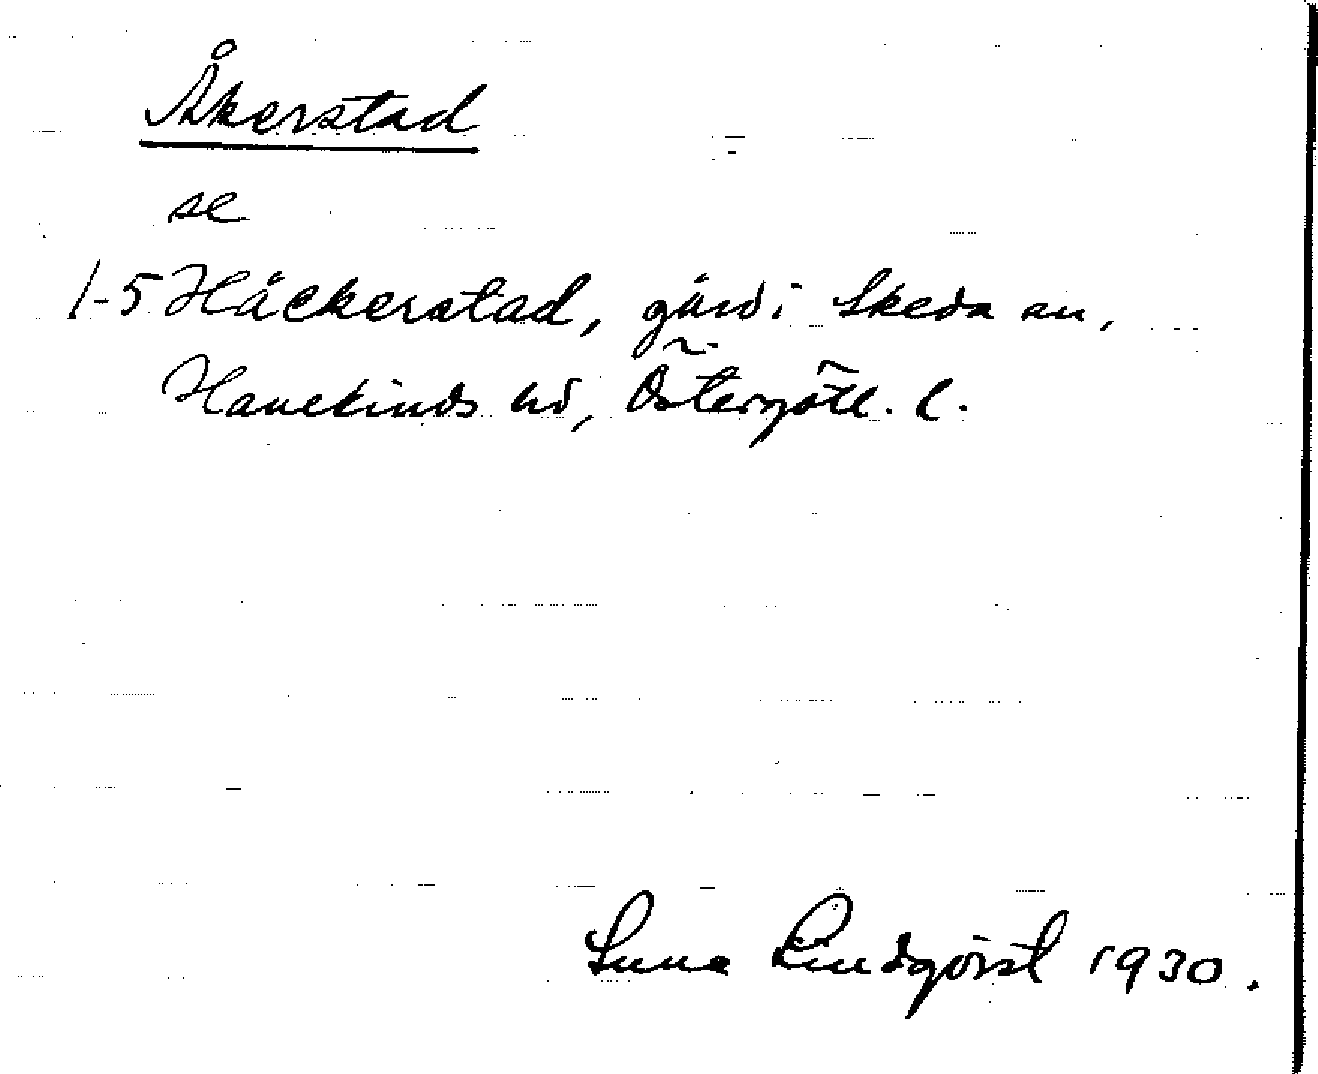 Åkerstad
se
1-5 Häckerstad, gård i Skeda sn,
Hanekinds hd, Östergötl. l.
Sune Lindqvist 1930.